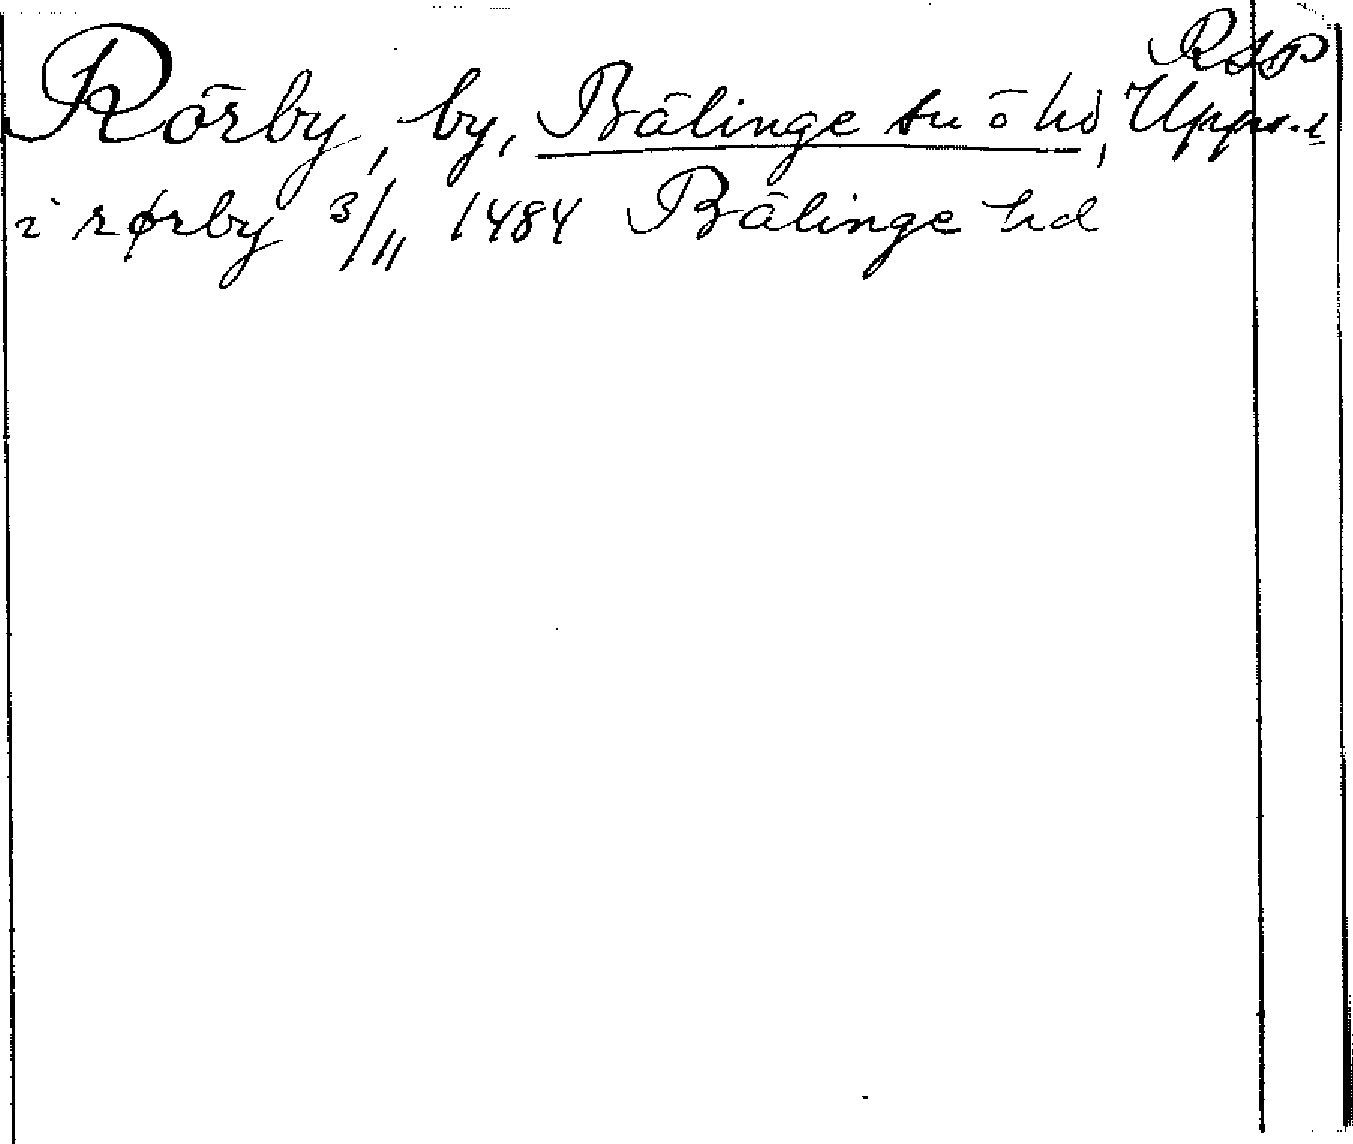 RAP
Rörby, by, Bälinge sn o hd, Upps. l
i rørby 3/11 1484 Bälinge hd